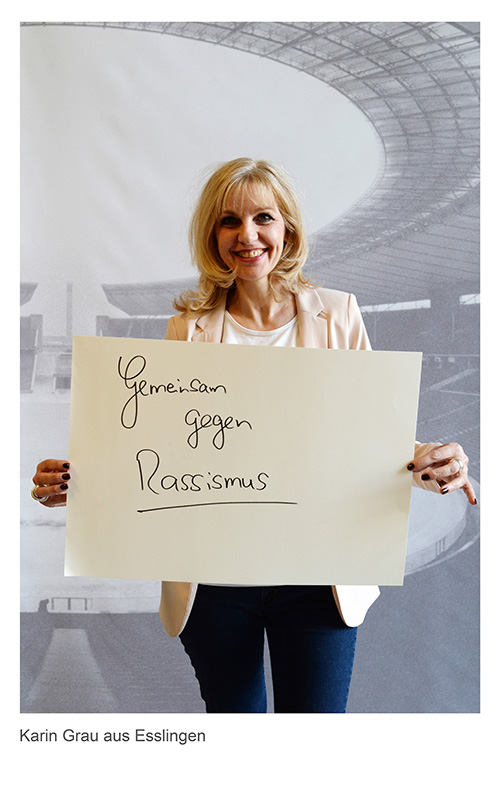 Gemeinsam
gegen
Rassismus
Karin Grau aus Esslingen